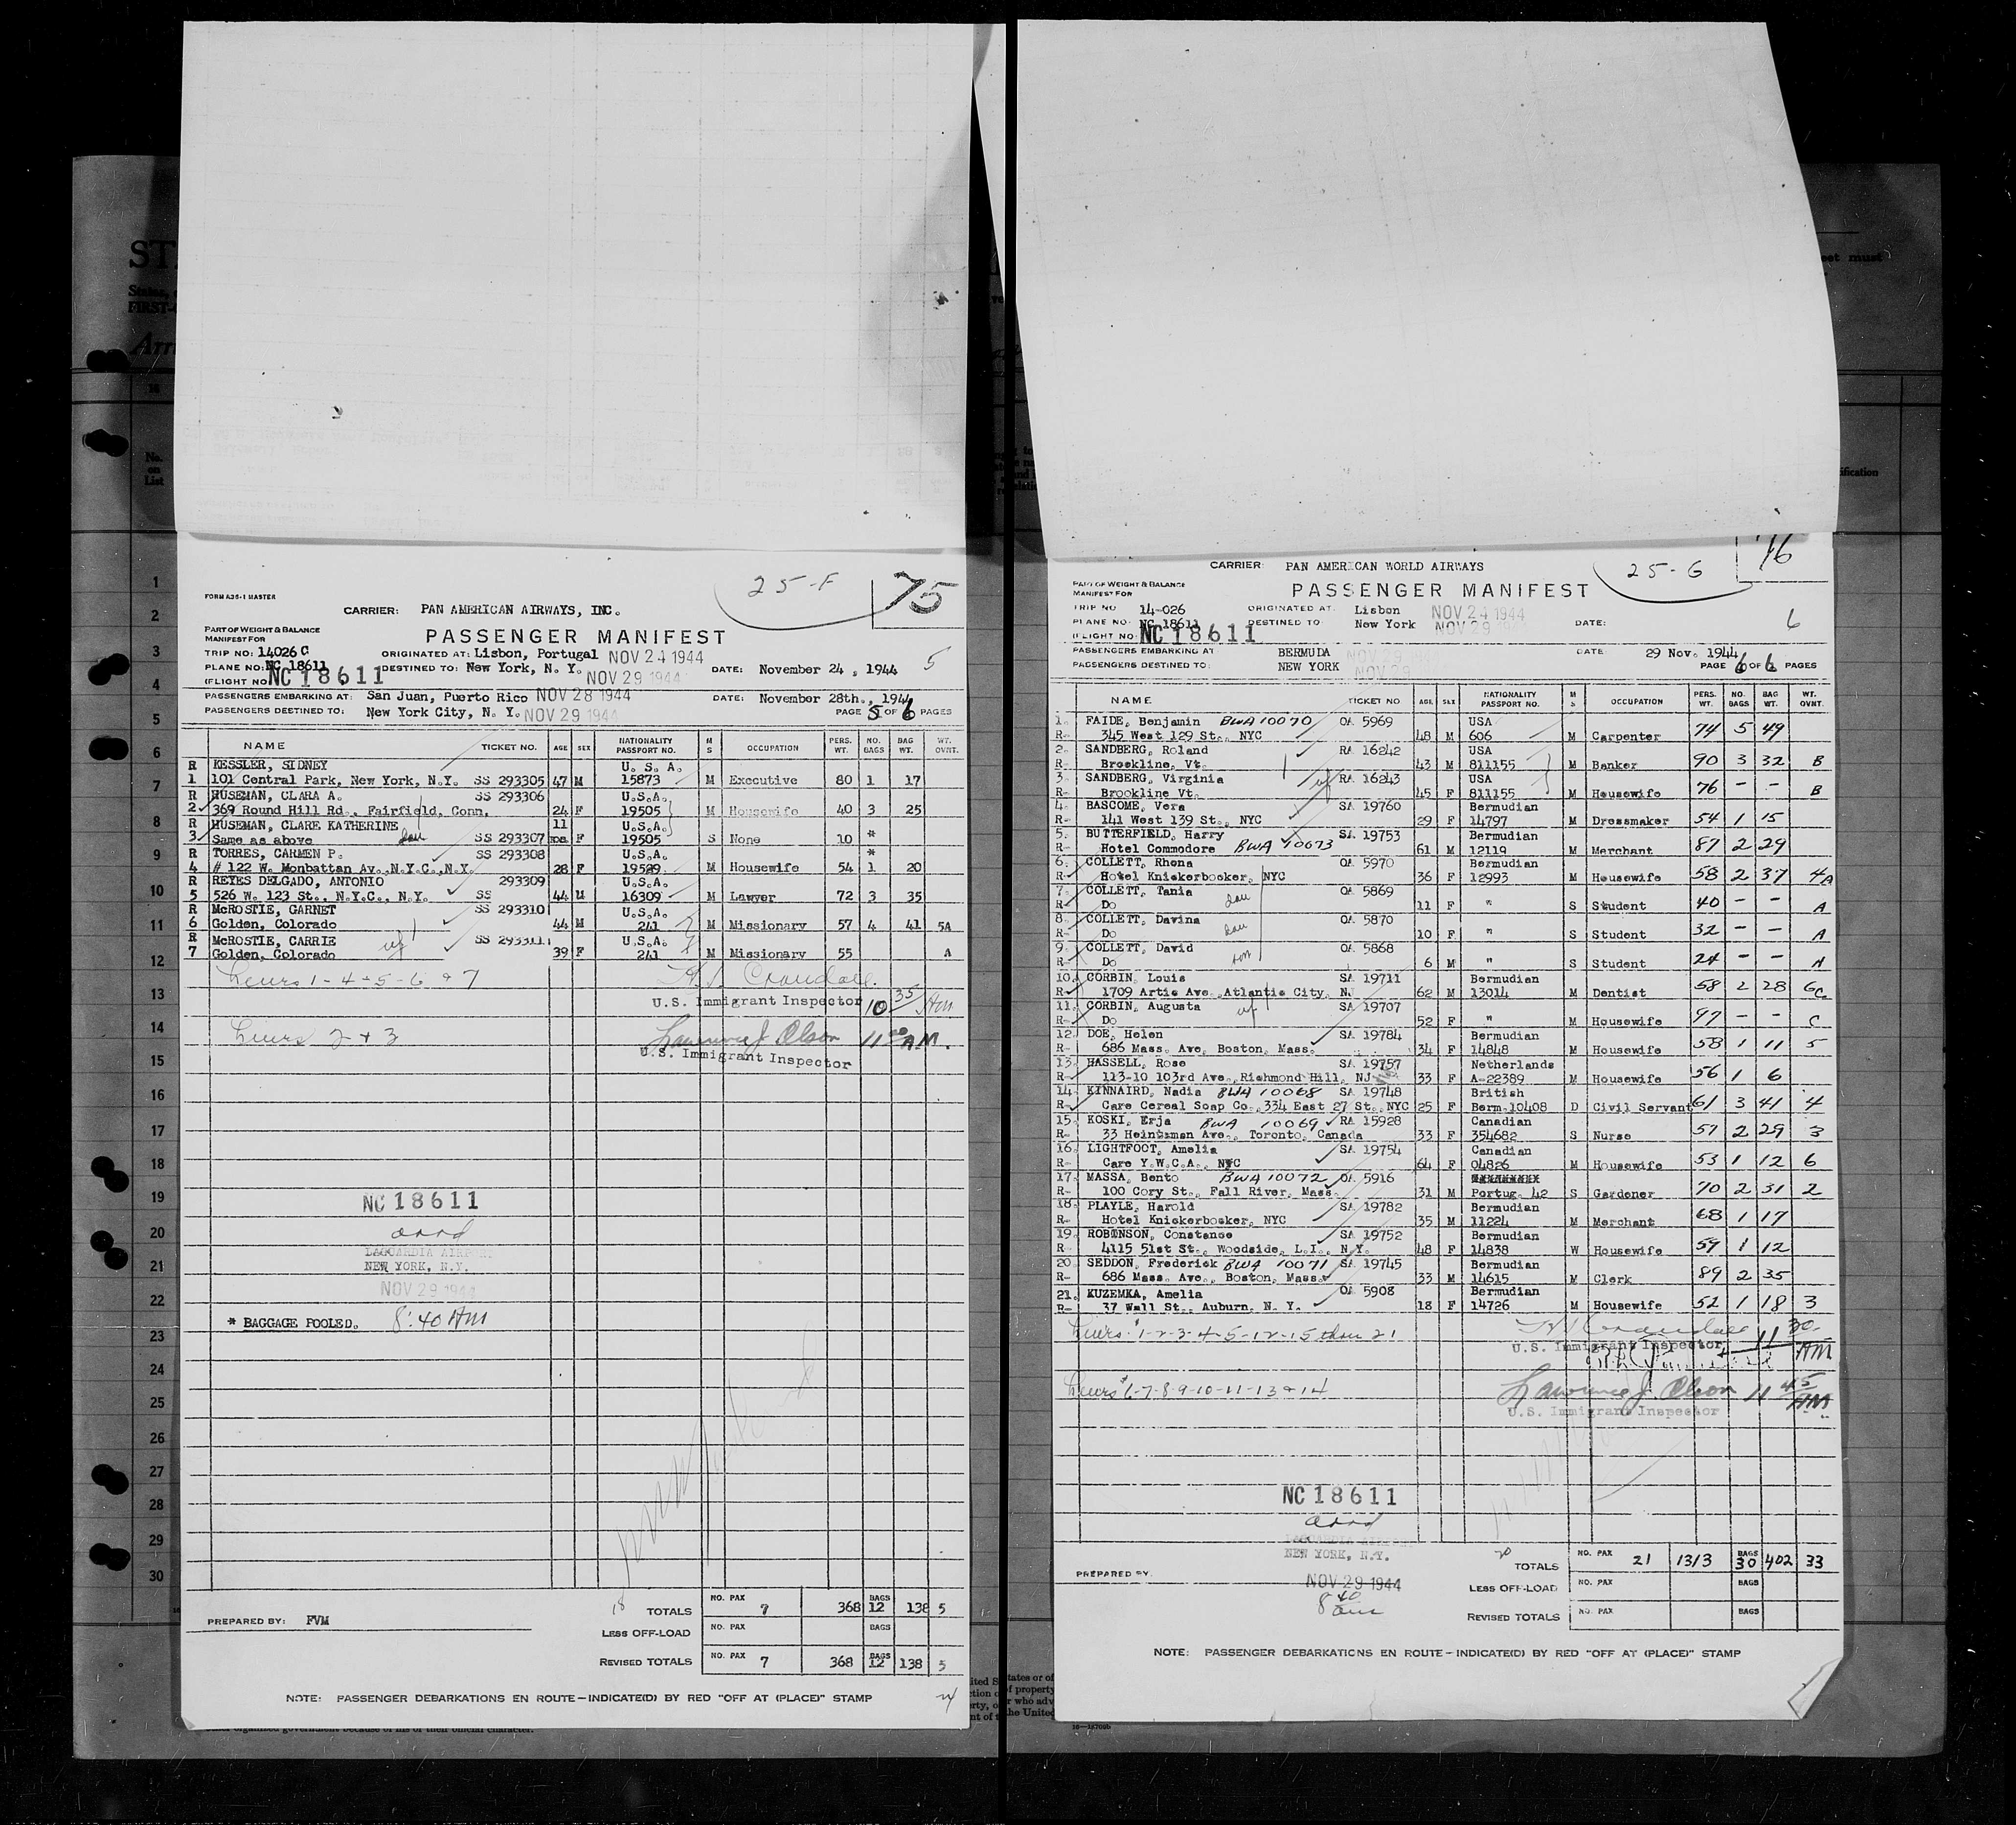 25-F
75
FORM A26-1 MASTER
CARRIER: PAN AMERICAN AIRWAYS, INC.
PART OF WEIGHT & BALANCE
MANIFEST FOR
PASSENGER MANIFEST
TRIP NO: 14026 C ORIGINATED AT: Lisbon, Portugal NOV 24 1944 5
PLANE NO: NC 18611 DESTINED TO: New York, N. Y. NOV 29 1944 DATE: November 24, 1944
(FLIGHT NO NC18611
PASSENGERS EMBARKING AT: San Juan, Puerto Rico NOV 28 1944 DATE: November 28th., 1944
PASSENGERS DESTINED TO: New York City, N. Y. NOV 29 1944 PAGE 5 OF 6 PAGES
NAME TICKET NO. AGE SEX NATIONALITY PASSPORT NO. M S OCCUPATION PERS. WT. NO. BAGS BAG WT. WT. OVNT.
R KESSLER, SIDNEY U. S. A.
1 101 Central Park, New York, N.Y. SS 293305 47 M 15873 M Executive 80 1 17
R HUSEMAN, CLARA A. SS 293306 U.S.A.
2 369 Round Hill Rd., Fairfield, Conn. 24 F 19505 M Housewife 40 3 25
R HUSEMAN, CLARE KATHERINE 11 U.S.A.
3 Same as above dau SS 293307 mos F 19505 S None 10 *
R TORRES, CARMEN P. SS 293308 U.S.A. *
4 # 122 W. Monbattan Av.,N.Y.C.,N.Y. 28 F 19589 M Housewife 54 1 20
R REYES DELGADO, ANTONIO 293309 U.S.A.
5 526 W. 123 St., N.Y.C., N.Y. SS 44 M 16309 M Lawyer 72 3 35
R McROSTIE, GARNET SS 293310 U.S.A.
6 Golden, Colorado 44 M 241 M Missionary 57 4 41 5A
R McROSTIE, CARRIE wf SS 293311 U.S.A.
7 Golden, Colorado 39 F 241 M Missionary 55 A
Lines 1-4-5-6 & 7 Crandall
U.S. Immigrant Inspector 10 35 AM
Lines 2 + 3 Lawrence J. Olson 11 00 AM.
U.S. Immigrant Inspector
NC18611
arrd
LAGUARDIA AIRPORT
NEW YORK, N.Y.
NOV 29 1944
* BAGGAGE POOLED. 8:40 AM
18 TOTALS NO. PAX 7 368 BAGS 12 138 5
PREPARED BY: FVM
LESS OFF-LOAD NO. PAX BAGS
REVISED TOTALS NO. PAX 7 368 BAGS 12 138 5
NOTE: PASSENGER DEBARKATIONS EN ROUTE—INDICATE(D) BY RED "OFF AT (PLACE)" STAMP
No.
on
List
1
2
3
4
5
6
7
8
9
10
11
12
13
14
15
16
17
18
19
20
21
22
23
24
25
26
27
28
29
30
CARRIER: PAN AMERICAN WORLD AIRWAYS 25-G 76
PART OF WEIGHT & BALANCE
MANIFEST FOR PASSENGER MANIFEST
TRIP NO 14-026 ORIGINATED AT: Lisbon NOV 24 1944
PLANE NO. NC 18611 DESTINED TO: New York NOV 29 DATE: 6
(FLIGHT NO. NC18611
PASSENGERS EMBARKING AT BERMUDA NOV 29 1944 DATE 29 Nov. 1944
PASSENGERS DESTINED TO: NEW YORK NOV 29 PAGE 6 OF 6 PAGES
NAME TICKET NO AGE SEX NATIONALITY PASSPORT NO. M S OCCUPATION PERS. WT. NO. BAGS BAG WT. WT. OVNT.
1. FAIDE, Benjamin BWA 10070 OA 5969 USA
R- 345 West 129 St., NYC 48 M 606 M Carpenter 74 5 49
2. SANDBERG, Roland RA 16242 USA
R- Brookline, Vt. 43 M 811155 M Banker 90 3 32 B
3. SANDBERG, Virginia wf RA 16243 USA
R- Brookline Vt. 45 F 811155 M Housewife 76 - - B
4. BASCOME, Vera SA 19760 Bermudian
R- 141 West 139 St., NYC 29 F 14797 M Dressmaker 54 1 15
5. BUTTERFIELD, Harry SA 19753 Bermudian
R- Hotel Commodore BWA 10073 61 M 12119 M Merchant 87 2 29
6. COLLETT, Rhona OA 5970 Bermudian
R- Hotel Knickerbocker, NYC 36 F 12993 M Housewife 58 2 37 4A
7. COLLETT, Tania OA 5869
R- Do dau 11 F " S Student 40 - - A
8. COLLETT, Davina OA 5870
R- Do dau 10 F " S Student 32 - - A
9. COLLETT, David OA 5868
R- Do son 6 M " S Student 24 - - A
10. CORBIN, Louis SA 19711 Bermudian
R- 1709 Artic Ave.,Atlantic City, NJ 62 M 13014 M Dentist 58 2 28 6C
11. CORBIN, Augusta SA 19707
R- Do wf 52 F " M Housewife 97 - - C
12. DOE, Helen SA 19784 Bermudian
R- 686 Mass. Ave, Boston, Mass. 34 F 14848 M Housewife 58 1 11 5
13. HASSELL, Rose SA 19757 Netherlands
R- 113-10 103rd Ave.,Richmond Hill, NJ 33 F A-22389 M Housewife 56 1 6
14. KINNAIRD, Nadia BWA 10068 SA 19748 British
R- Care Cereal Soap Co.,334 East 27 St., NYC 25 F Berm-10408 D Civil Servant 61 3 41 4
15. KOSKI, Erja BWA 10069 RA 15928 Canadian
R- 33 Heintzman Ave., Toronto, Canada 33 F 354682 S Nurse 57 2 29 3
16. LIGHTFOOT, Amelia SA 19754 Canadian
R- Care Y.W.C.A., NYC 64 F 04826 M Housewife 53 1 12 6
17. MASSA, Bento BWA 10072 OA 5916
R- 100 Cory St., Fall River, Mass. 31 M Portug. 42 S Gardener 70 2 31 2
18. PLAYLE, Harold SA 19782 Bermudian
R- Hotel Knickerbocker, NYC 35 M 11224 M Merchant 68 1 17
19. ROBINSON, Constance SA 19752 Bermudian
R- 4115 51st St., Woodside, L.I., N.Y. 48 F 14838 W Housewife 59 1 12
20. SEDDON, Frederick BWA 10071 SA 19745 Bermudian
R- 686 Mass. Ave., Boston, Mass. 33 M 14615 M Clerk 89 2 35
21. KUZEMKA, Amelia OA 5908 Bermudian
R- 37 Wall St., Auburn, N. Y. 18 F 14726 M Housewife 52 1 18 3
Lines # 1-2-3-4-5-12-15 thru 21 Crandall 11 30
U.S. Immigrant Inspector AM
Lines # 6-7-8-9-10-11-13 & 14 Lawrence J. Olson 11 45 AM
U.S. Immigrant Inspector
NC18611
arrd
LAGUARDIA
NEW YORK, N.Y.
NOV 29 1944
8 40 am
PREPARED BY.
20 TOTALS NO. PAX 21 1313 BAGS 30 402 33
LESS OFF-LOAD NO. PAX BAGS
REVISED TOTALS NO. PAX BAGS
NOTE: PASSENGER DEBARKATIONS EN ROUTE—INDICATE(D) BY RED "OFF AT (PLACE)" STAMP